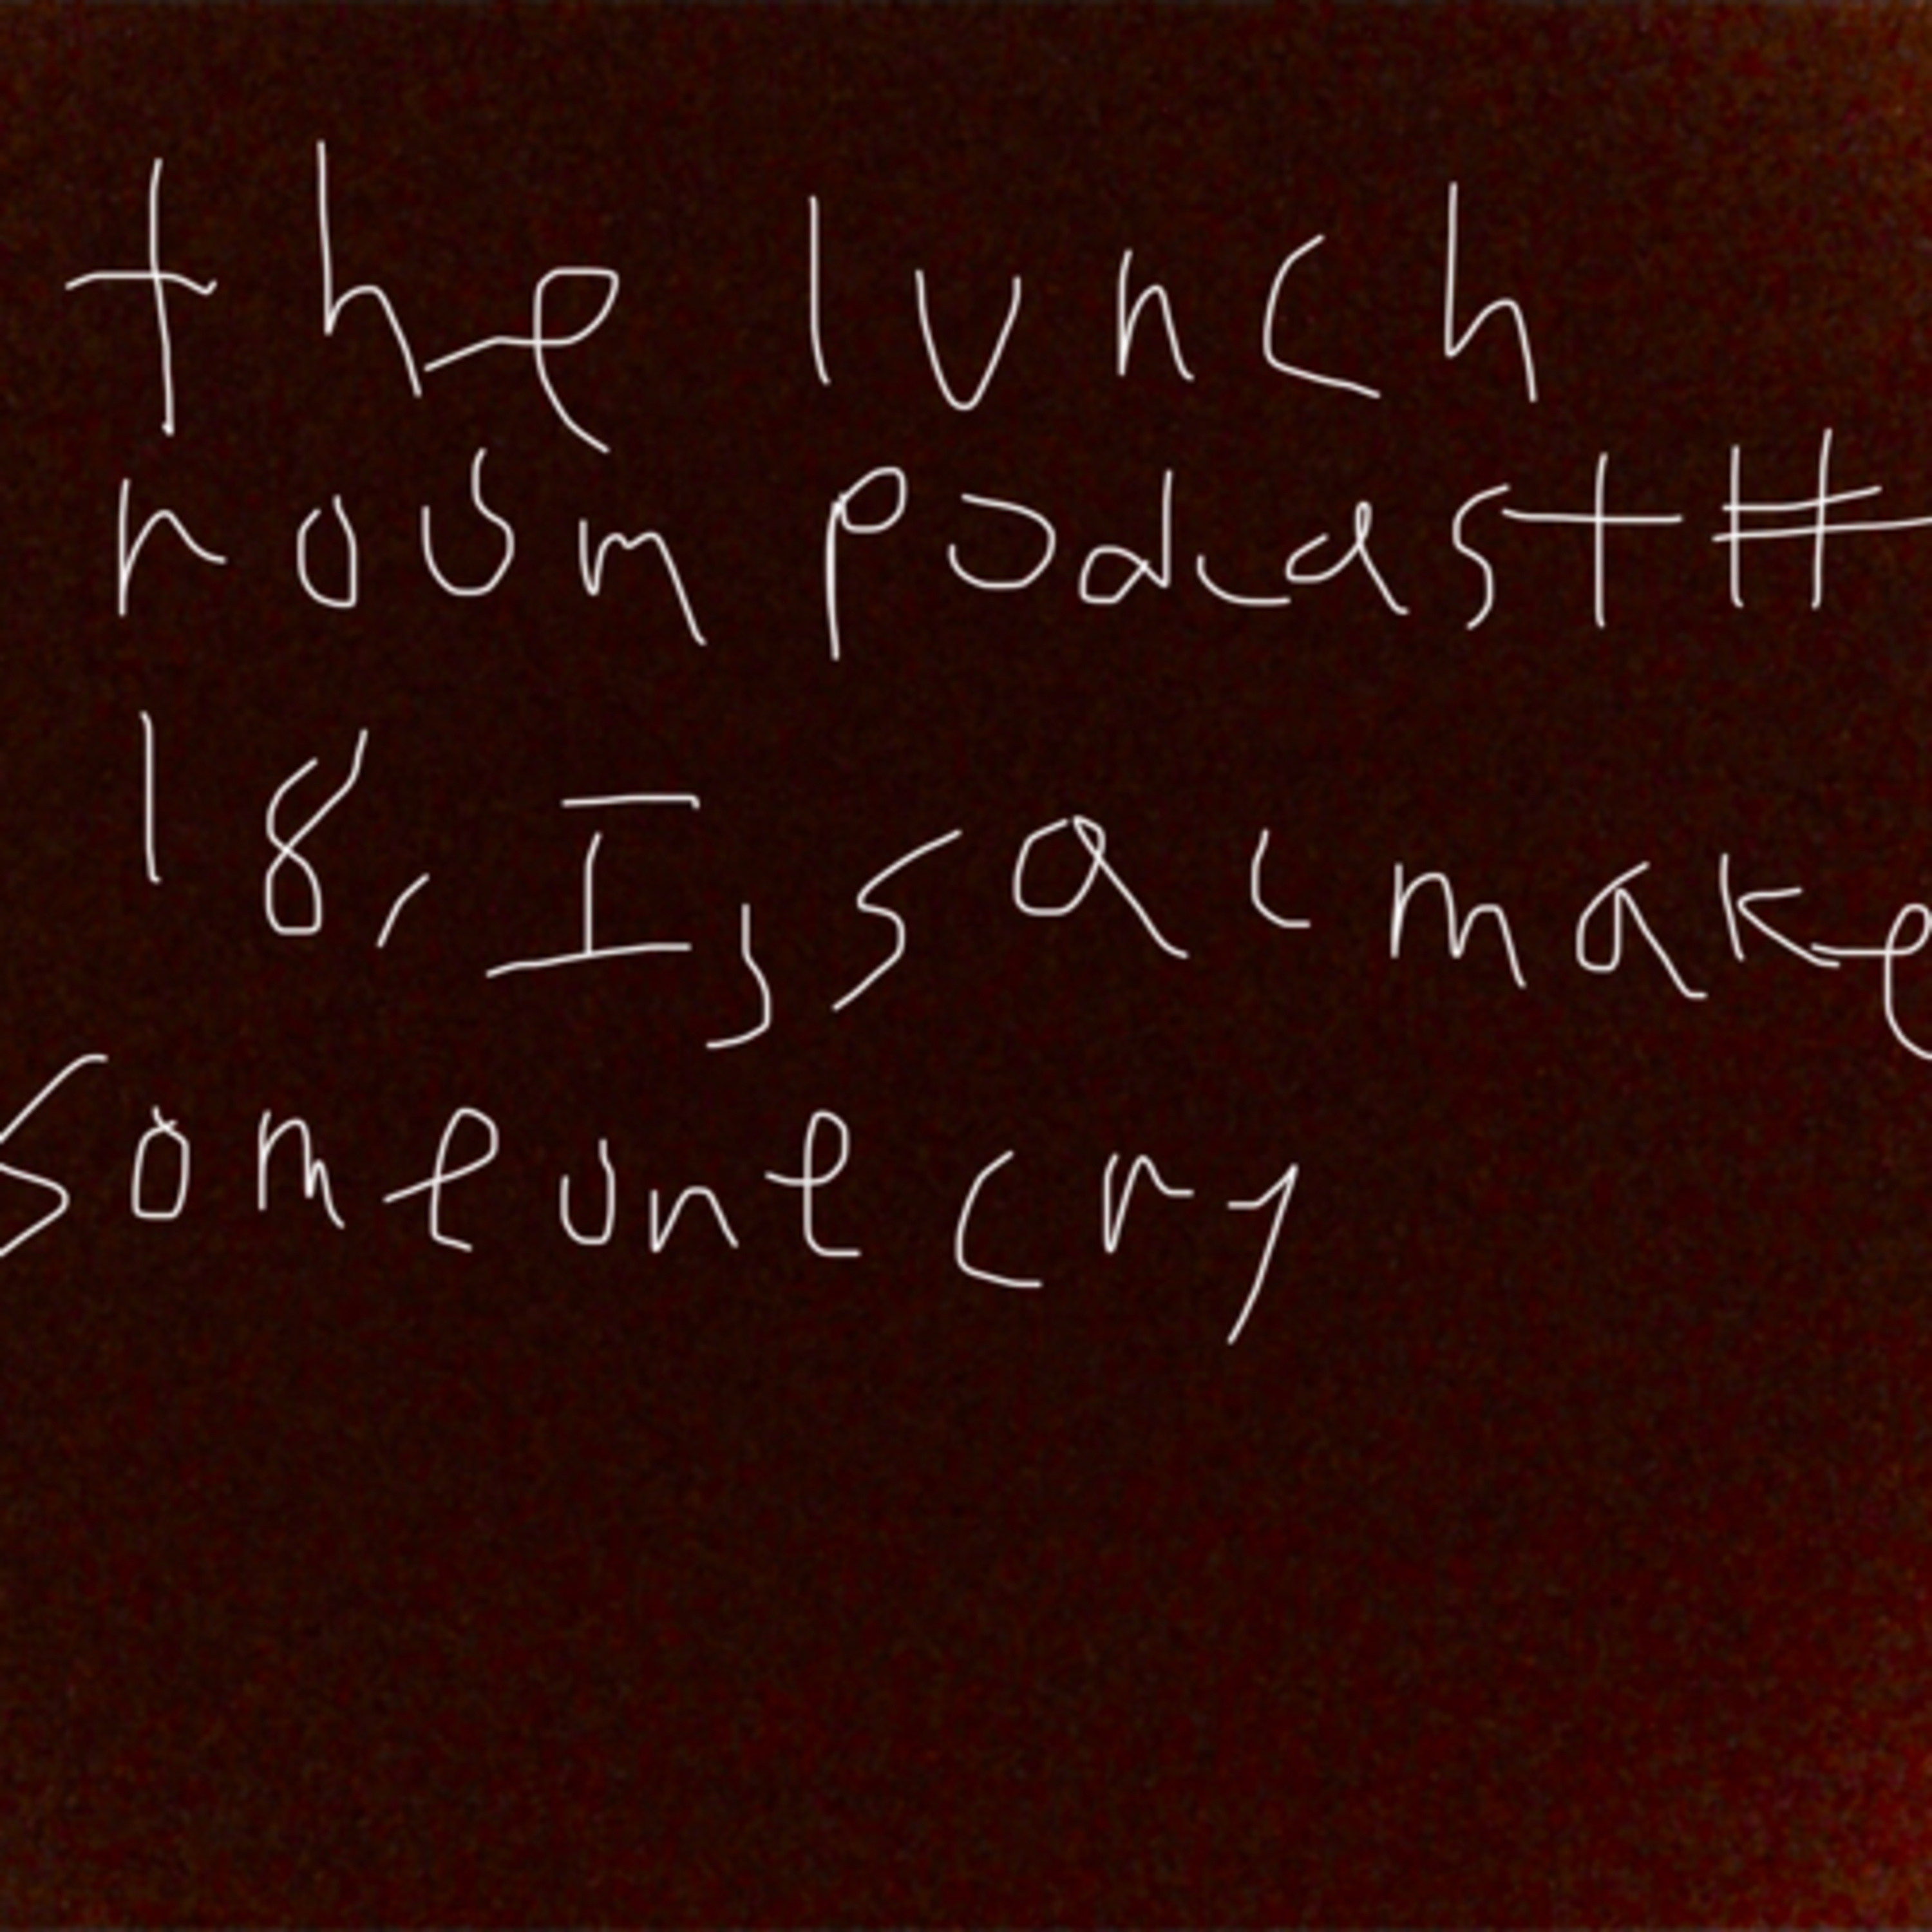 the lunch
room podcast #
18, Isaac make
someone cry